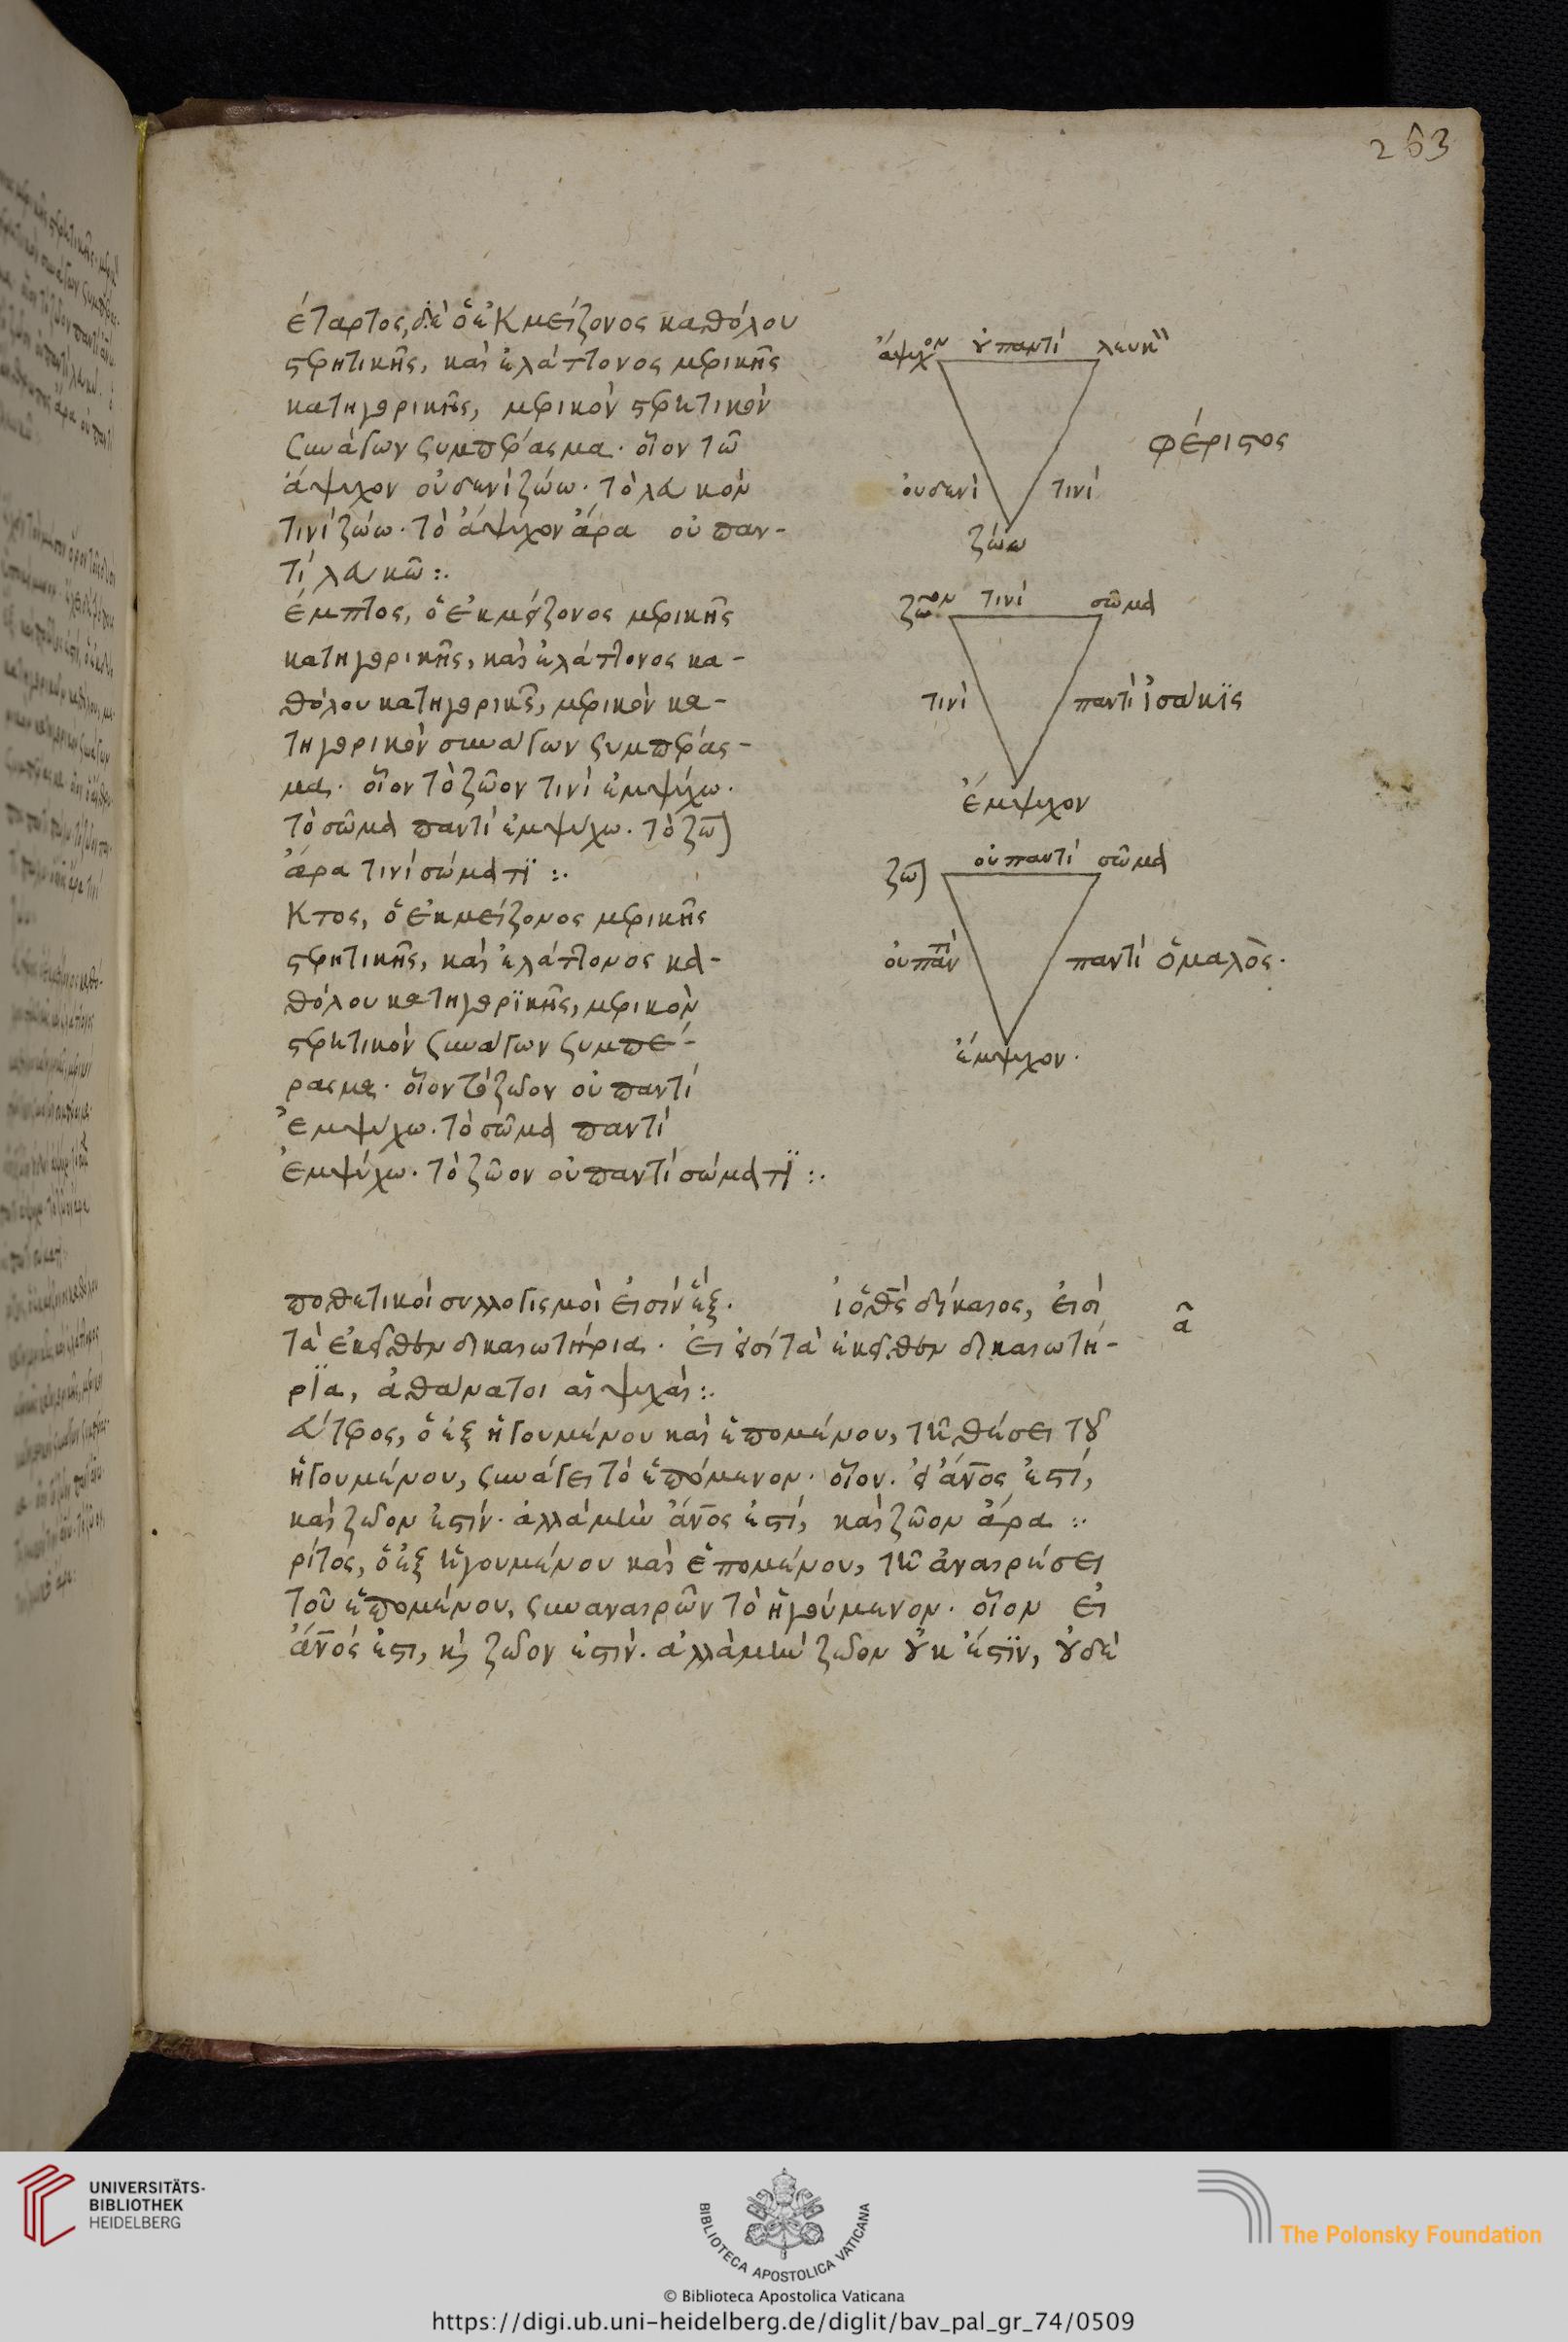 263
έταρτος, δὲ ὁ ἐκ μείζονος καθόλου
στερητικῆς, καὶ ἐλάττονος μερικῆς
κατηγορικῆς, μερικὸν στερητικὸν
συνάγων συμπέρασμα. οἷον τῶ
ἄψυχον οὐδενὶ ζώω. τὸ λευκὸν
τινὶ ζώω. τὸ ἄψυχον ἄρα οὐ παν-
τὶ λευκῶ :.
έμπτος, ὁ ἐκ μείζονος μερικῆς
κατηγορικῆς, καὶ ἐλάττονος κα-
θόλου κατηγορικῆς, μερικὸν κα-
τηγορικὸν συνάγων συμπέρασ-
μα. οἷον τὸ ζῶον τινὶ ἐμψύχω.
τὸ σῶμα παντὶ ἐμψύχω. τὸ ζῶον
ἄρα τινὶ σώματϊ :.
κτος, ὁ ἐκ μείζονος μερικῆς
στερητικῆς, καὶ ἐλάττονος κα-
θόλου κατηγορϊκῆς, μερικὸν
στερητικὸν συνάγων συμπέ-
ρασμα. οἷον τὸ ζῶον οὐ παντὶ
ἐμψύχω. τὸ σῶμα παντὶ
ἐμψύχω. τὸ ζῶον οὐ παντὶ σώματϊ :.
ἄψυχον οὐ παντὶ λευκῶ
οὐδενὶ τινὶ
ζώω
φέριστος
ζῶον τινὶ σῶμα
τινὶ παντὶ ἰσάκϊς
ἔμψυχον
ζῶον οὐ παντὶ σῶμα
οὐ παντὶ παντὶ ὁμαλὸς.
ἔμψυχον.
ποθετικοὶ συλλογισμοὶ εἰσὶν ἕξ. ἰ ὁ θεός δίκαιος, εἰσὶ
α
τὰ ἐκεῖθεν δικαιωτήρια. εἰ εἰσὶ τὰ ἐκεῖθεν δικαιωτή-
ρϊα, ἀθάνατοι αἱ ψυχαὶ :.
εύτερος, ὁ ἐξ ἡγουμένου καὶ ἑπομένου, τῆ θέσει τοῦ
ἡγουμένου, συνάγει τὸ ἑπόμενον. οἷον. εἰ ἄνος ἐστί,
καὶ ζῶον ἐστίν. ἀλλὰ μὴν ἄνος ἐστί, καὶ ζῶον ἄρα :.
ρίτος, ὁ ἐξ ἡγουμένου καὶ ἑπομένου, τῆ ἀναιρέσει
τοῦ ἑπομένου, συναναιρῶν τὸ ἡγούμενον. οἷον εἰ
ἄνος ἐστι, καὶ ζῶον ἐστίν. ἀλλὰ μὴν ζῶον οὐκ ἔστϊν, οὐδὲ
UNIVERSITÄTS-
BIBLIOTHEK
HEIDELBERG
BIBLIOTECA APOSTOLICA VATICANA
The Polonsky Foundation
© Biblioteca Apostolica Vaticana
https://digi.ub.uni-heidelberg.de/diglit/bav_pal_gr_74/0509